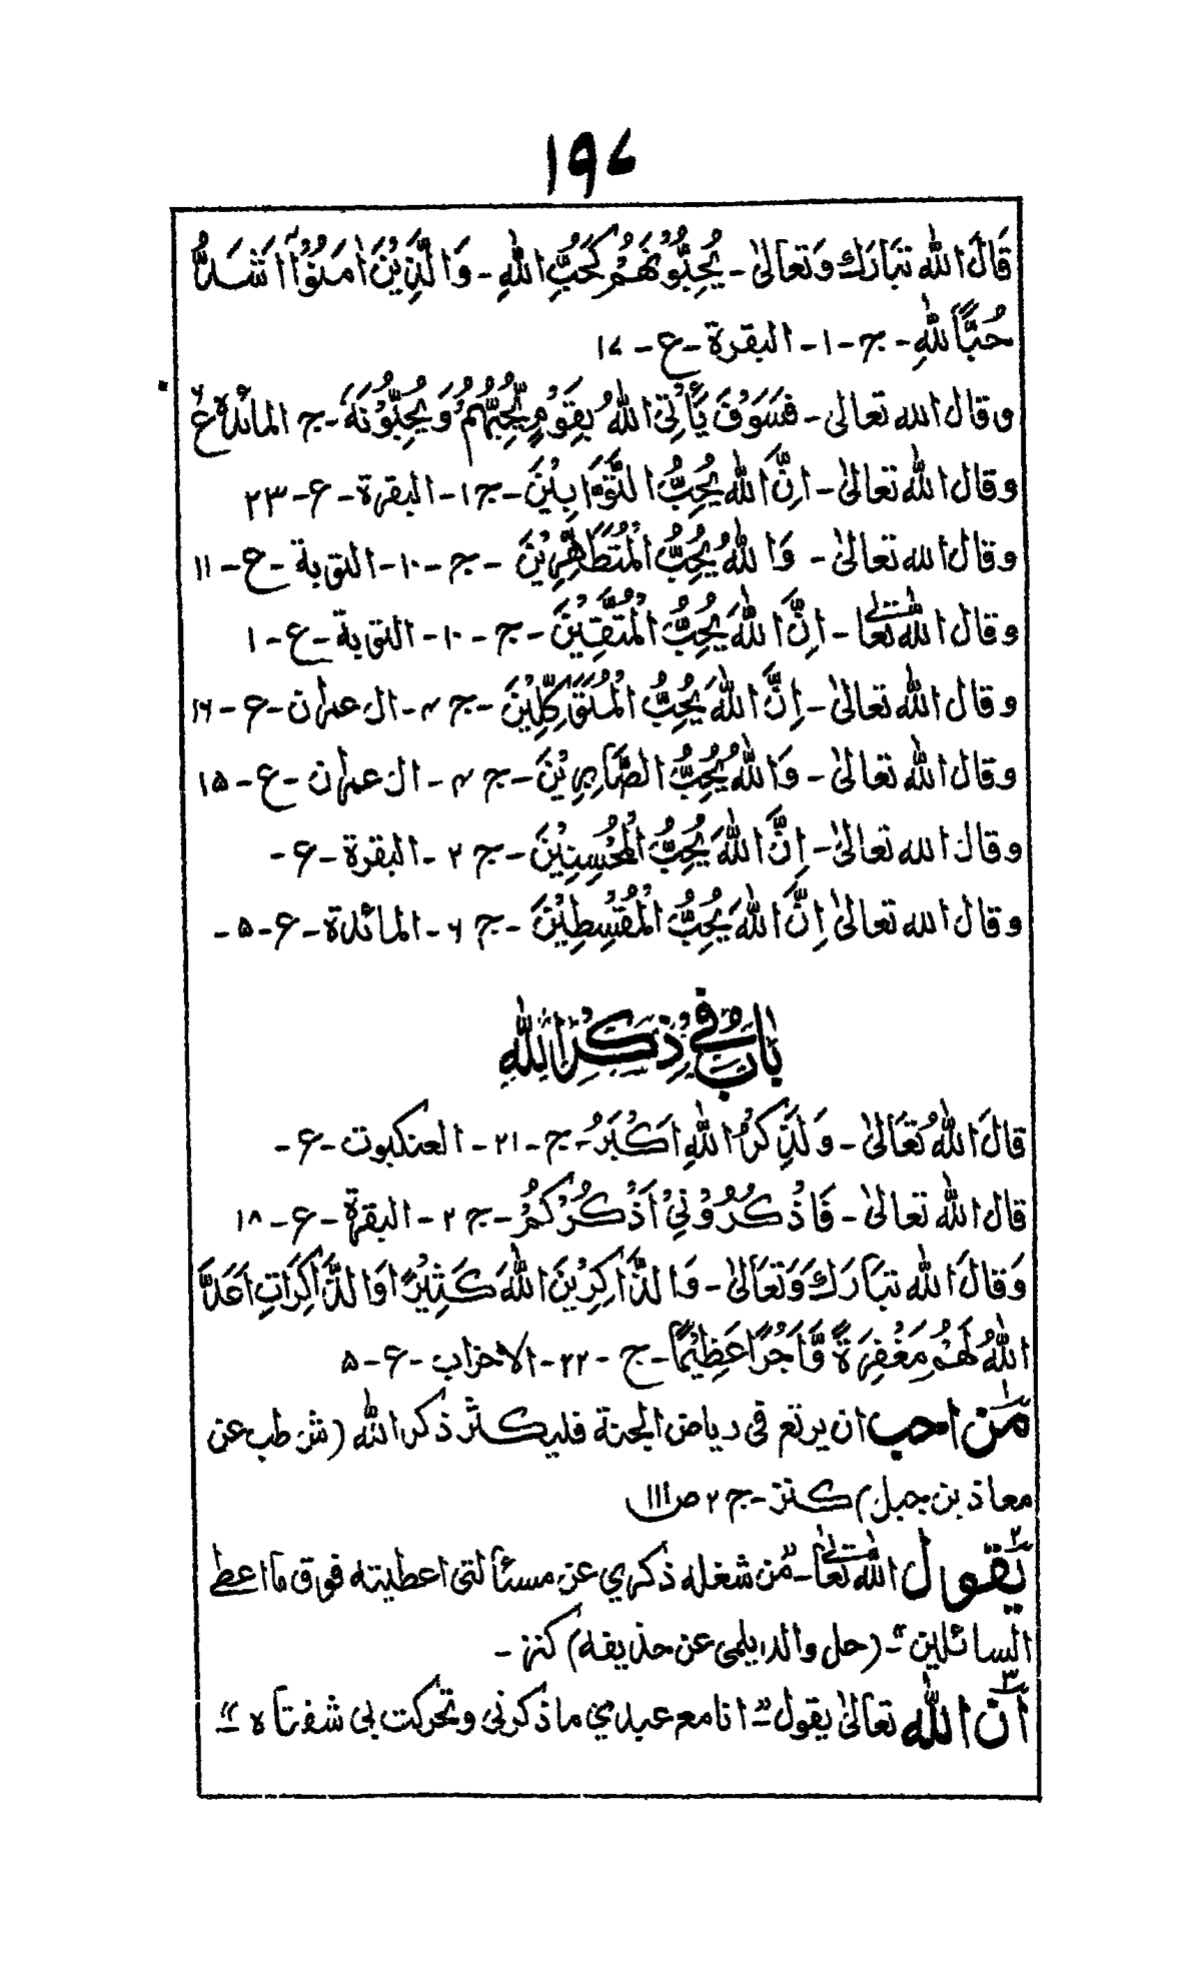 ۱۹۷
قَالَ اللّٰه تَبَارَكَ وَتَعالىٰ - يُحِبُّوْنَهُمْ كَحُبِّ اللّٰهِ - وَالَّذِيْنَ اٰمَنُوْٓا اَشَدُّ
حُبًّا لِّلّٰهِ - ج - ۱ - البقرة - ع - ۱۷
وقال الله تعالى - فَسَوْفَ يَأْتِي اللّٰهُ بِقَوْمٍ يُّحِبُّهُمْ وَيُحِبُّوْنَهٗ - ج المائدة ع
وقال اللّٰه تعالىٰ - اِنَّ اللّٰهَ يُحِبُّ التَّوَّابِيْنَ - ج ۱ - البقرة - ع - ۲۳
وقال الله تعالىٰ - وَاللّٰهُ يُحِبُّ الْمُتَطَهِّرِيْنَ - ج - ۱۰ - التوبة - ع - ۱۱
وقال اللّٰه تعالىٰ - اِنَّ اللّٰهَ يُحِبُّ الْمُتَّقِيْنَ - ج - ۱۰ - التوبة - ع - ۱
وقال اللّٰه تعالىٰ - اِنَّ اللّٰهَ يُحِبُّ الْمُتَوَكِّلِيْنَ - ج ۴ - ال عمران - ع - ۱۶
وقال اللّٰه تعالىٰ - وَاللّٰهُ يُحِبُّ الصَّابِرِيْنَ - ج ۴ - ال عمران - ع - ۱۵
وقال الله تعالىٰ - اِنَّ اللّٰهَ يُحِبُّ الْمُحْسِنِيْنَ - ج ۲ - البقرة - ع -
وقال الله تعالىٰ اِنَّ اللّٰهَ يُحِبُّ الْمُقْسِطِيْنَ - ج ۶ - المائدة - ع - ۵ -
بَابٌ فِيْ ذِكْرِ اللّٰهِ
قَالَ اللّٰهُ تَعَالىٰ - وَلَذِكْرُ اللّٰهِ اَكْبَرُ - ج - ۲۱ - العنكبوت - ع -
قال اللّٰه تعالىٰ - فَاذْكُرُوْنِيْ اَذْكُرْكُمْ - ج ۲ - البقرة - ع - ۱۸
وَقَالَ اللّٰه تَبَارَكَ وَتَعَالىٰ - وَالذَّاكِرِيْنَ اللّٰهَ كَثِيْرًا وَالذَّاكِرَاتِ اَعَدَّ
اللّٰهُ لَهُمْ مَغْفِرَةً وَّاَجْرًا عَظِيْمًا - ج - ۲۲ - الاحزاب - ع - ۵
۱ مَن احب ان يرتع في رياض الجنة فليكثر ذكر اللّٰه (ش طب عن
معاذ بن جبل) كنز - ج ۲ ص ۱۱۱
۲ يَقول اللّٰه تعالىٰ - "من شغله ذكري عن مسئالتى اعطيته فوق ما اعطى
السائلين" - (حل والديلمى عن حذيفة) كنز -
۳ ان اللّٰه تعالىٰ يقول - "انا مع عبدي ما ذكرنى وتحركت بى شفتاه" -